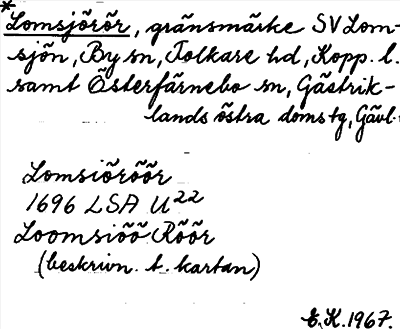 *Lomsjörör, gränsmärke SV Lom-
sjön, By sn, Folkare hd, Kopp. l.
samt Österfärnebo sn, Gästrik-
lands östra doms tg, Gävl.
Lomsiöröör
1696 LSA U22
Loomsiöö Röör
(beskrivn. t. kartan)
E.K. 1967.